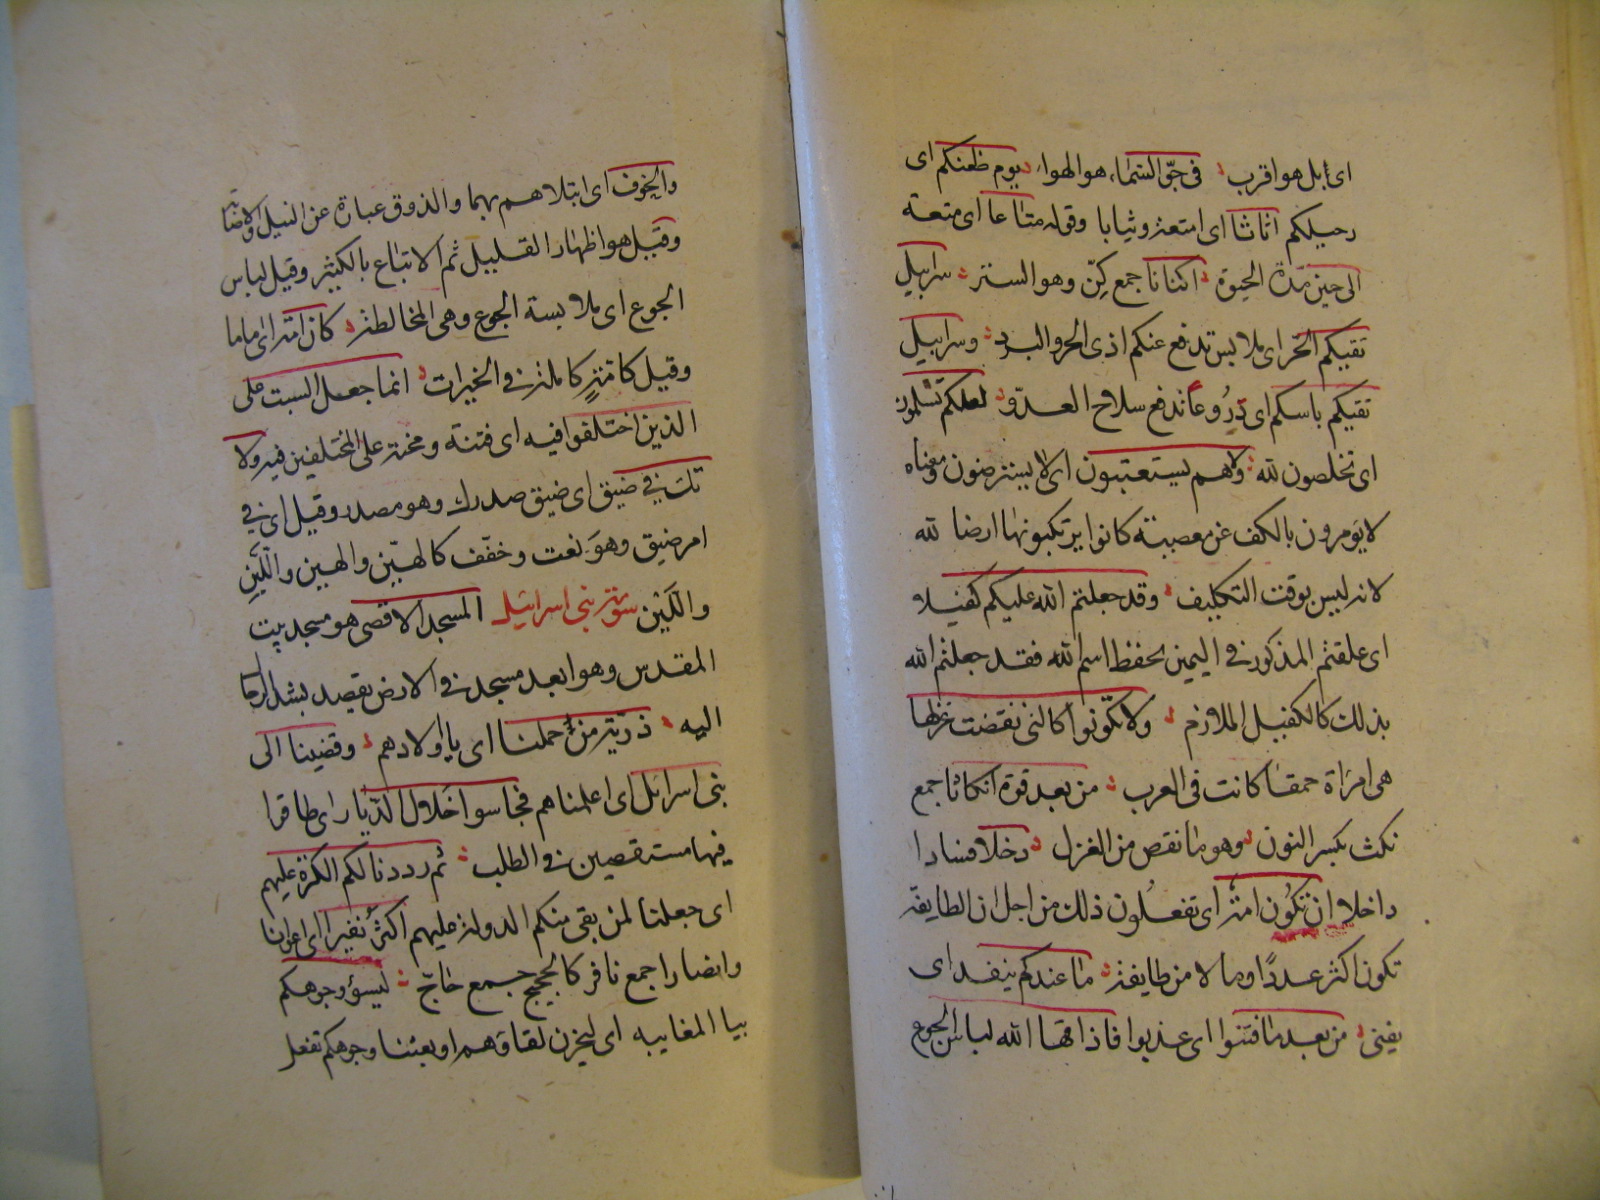 اى بل هو اقرب فى جوّ السّمآء هو الهوآء يوم ظعنكم اى
رحيلكم اثاثا اى امتعة وثيابا وقوله متاعا اى متعة
الى حين مدة الحيوة اكنانا جمع كِنّ وهو الستر سرابيل
تقيكم الحّر اى ملابس تدفع عنكم اذى الحر والبرد وسرابيل
تقيكم باسكم اى دروعا تدفع سلاح العدوّ لعلكم تسلمون
اى تخلصون لله ولاهم يستعتبون اى لا يسترضون ومعناه
لا يومرون بالكف عن معصية كانوا يرتكبونها ارضا لله
لانه ليس بوقت التكليف وقد جعلتم الله عليكم كفيلا
اى علقتم المذكور فى اليمين بحفظ اسم الله فقد جعلتم الله
بذلك كالكفيل الملازم ولا تكونوا كالتى نقضت غزلها
هى امراة حمقا كانت فى العرب من بعد قوة انكاثا جمع
نكث بكسر النون وهو ما نقص من الغزل دخلا فسادا
داخلا ان تكون امة اى تفعلون ذلك من اجل ان الطايفة
تكون اكثر عددًا ومالا من طايفة ما عندكم ينفد اى
يفنى من بعد ما فتنوا اى عذبوا فاذاقها الله لباس الجوع
والخوف اى ابتلاهم بهما والذوق عبارة عن النيل والاصابة
وقيل هو اظهار القليل ثم الاتباع بالكثير وقيل لباس
الجوع اى ملابسة الجوع وهى المخالطة كان امة اى اماما
وقيل كامة كاملة فى الخيرات انما جعل السبت على
الذين اختلفوا فيه اى فتنة ومحنة على المختلفين فيه ولا
تك فى ضيق اى ضيق صدرك وهو مصدر وقيل اى فى
امر ضيق وهو نعت وخفّف كالهيّن والهين والليّن
واللين سورة بنى اسرائيل المسجد الاقصى هو مسجد بيت
المقدس وهو ابعد مسجد فى الارض يقصد بشد الرحا
اليه ذرية من حملنا اى يا اولادهم وقضينا الى
بنى اسرائل اى اعلمناهم فجاسوا خلال الديار اى طافوا
فيها مستقصين فى الطلب ثم رددنا لكم الكرة عليهم
اى جعلنا لمن بقى منكم الدولة عليهم اكثر نفيرا اى اعوانا
وانصارا جمع نافر كالحجيج جمع حاجّ ليسؤ وجوهكم
بيا المغايبه اى ليحزن لقاؤهم او بعثنا وجوهكم تفعل